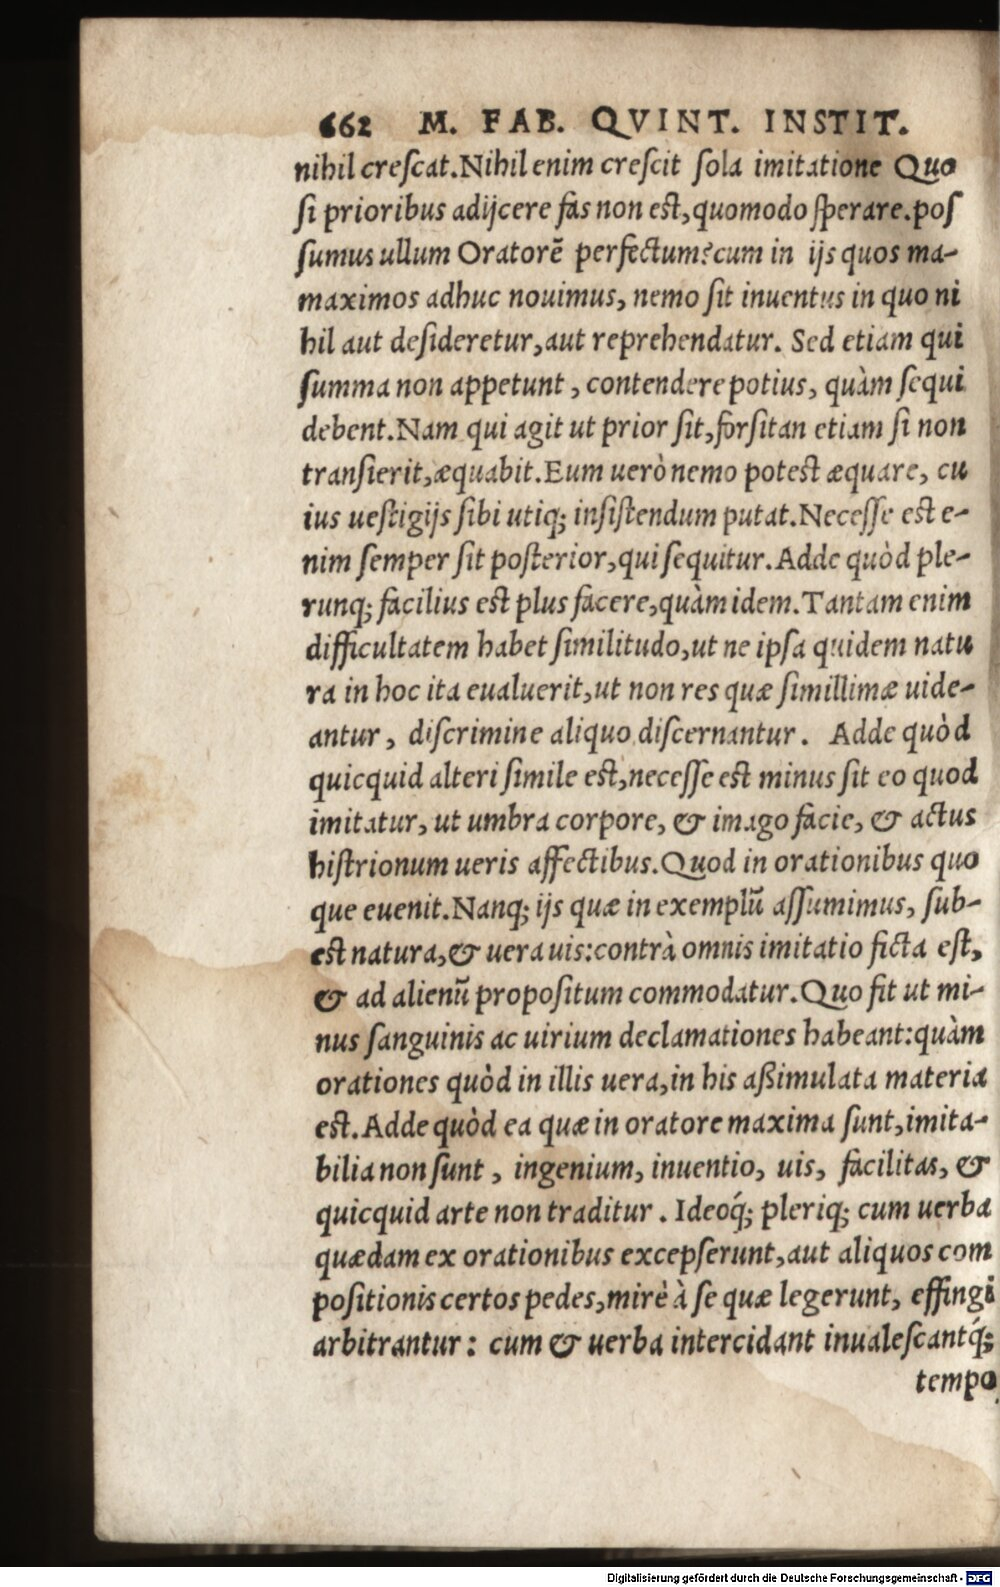 662 M. FAB. QVINT. INSTIT.
nihil creſcat.Nihil enim creſcit ſola imitatione Quo
ſi prioribus adijcere fas non eſt,quomodo ſperare.poſ
ſumus ullum Oratorē perfectum?cum in ijs quos ma-
maximos adhuc nouimus, nemo ſit inuentus in quo ni
hil aut deſideretur,aut reprehendatur. Sed etiam qui
ſumma non appetunt, contendere potius, quàm ſequi
debent.Nam qui agit ut prior ſit,forſitan etiam ſi non
tranſierit,æquabit.Eum uerò nemo poteſt æquare, cu
ius ueſtigijs ſibi utiq; inſiſtendum putat.Neceſſe eſt e-
nim ſemper ſit poſterior,qui ſequitur.Adde quòd ple-
runq; facilius eſt plus facere,quàm idem.Tantam enim
difficultatem habet ſimilitudo,ut ne ipſa quidem natu
ra in hoc ita eualuerit,ut non res quæ ſimillimæ uide-
antur, diſcrimine aliquo diſcernantur. Adde quòd
quicquid alteri ſimile eſt,neceſſe eſt minus ſit eo quod
imitatur, ut umbra corpore, & imago facie, & actus
hiſtrionum ueris affectibus.Quod in orationibus quo
que euenit.Nanq; ijs quæ in exemplū aſſumimus, ſub-
eſt natura,& uera uis:contrà omnis imitatio ficta eſt,
& ad alienū propoſitum commodatur.Quo fit ut mi-
nus ſanguinis ac uirium declamationes habeant:quàm
orationes quòd in illis uera,in his aßimulata materia
eſt.Adde quòd ea quæ in oratore maxima ſunt,imita-
bilia non ſunt, ingenium, inuentio, uis, facilitas, &
quicquid arte non traditur. Ideoq́; pleriq; cum uerba
quædam ex orationibus excepſerunt,aut aliquos com
poſitionis certos pedes,mirè à ſe quæ legerunt, effingi
arbitrantur: cum & uerba intercidant inualeſcantq́;
tempo
Digitalisierung gefördert durch die Deutsche Forschungsgemeinschaft - DFG